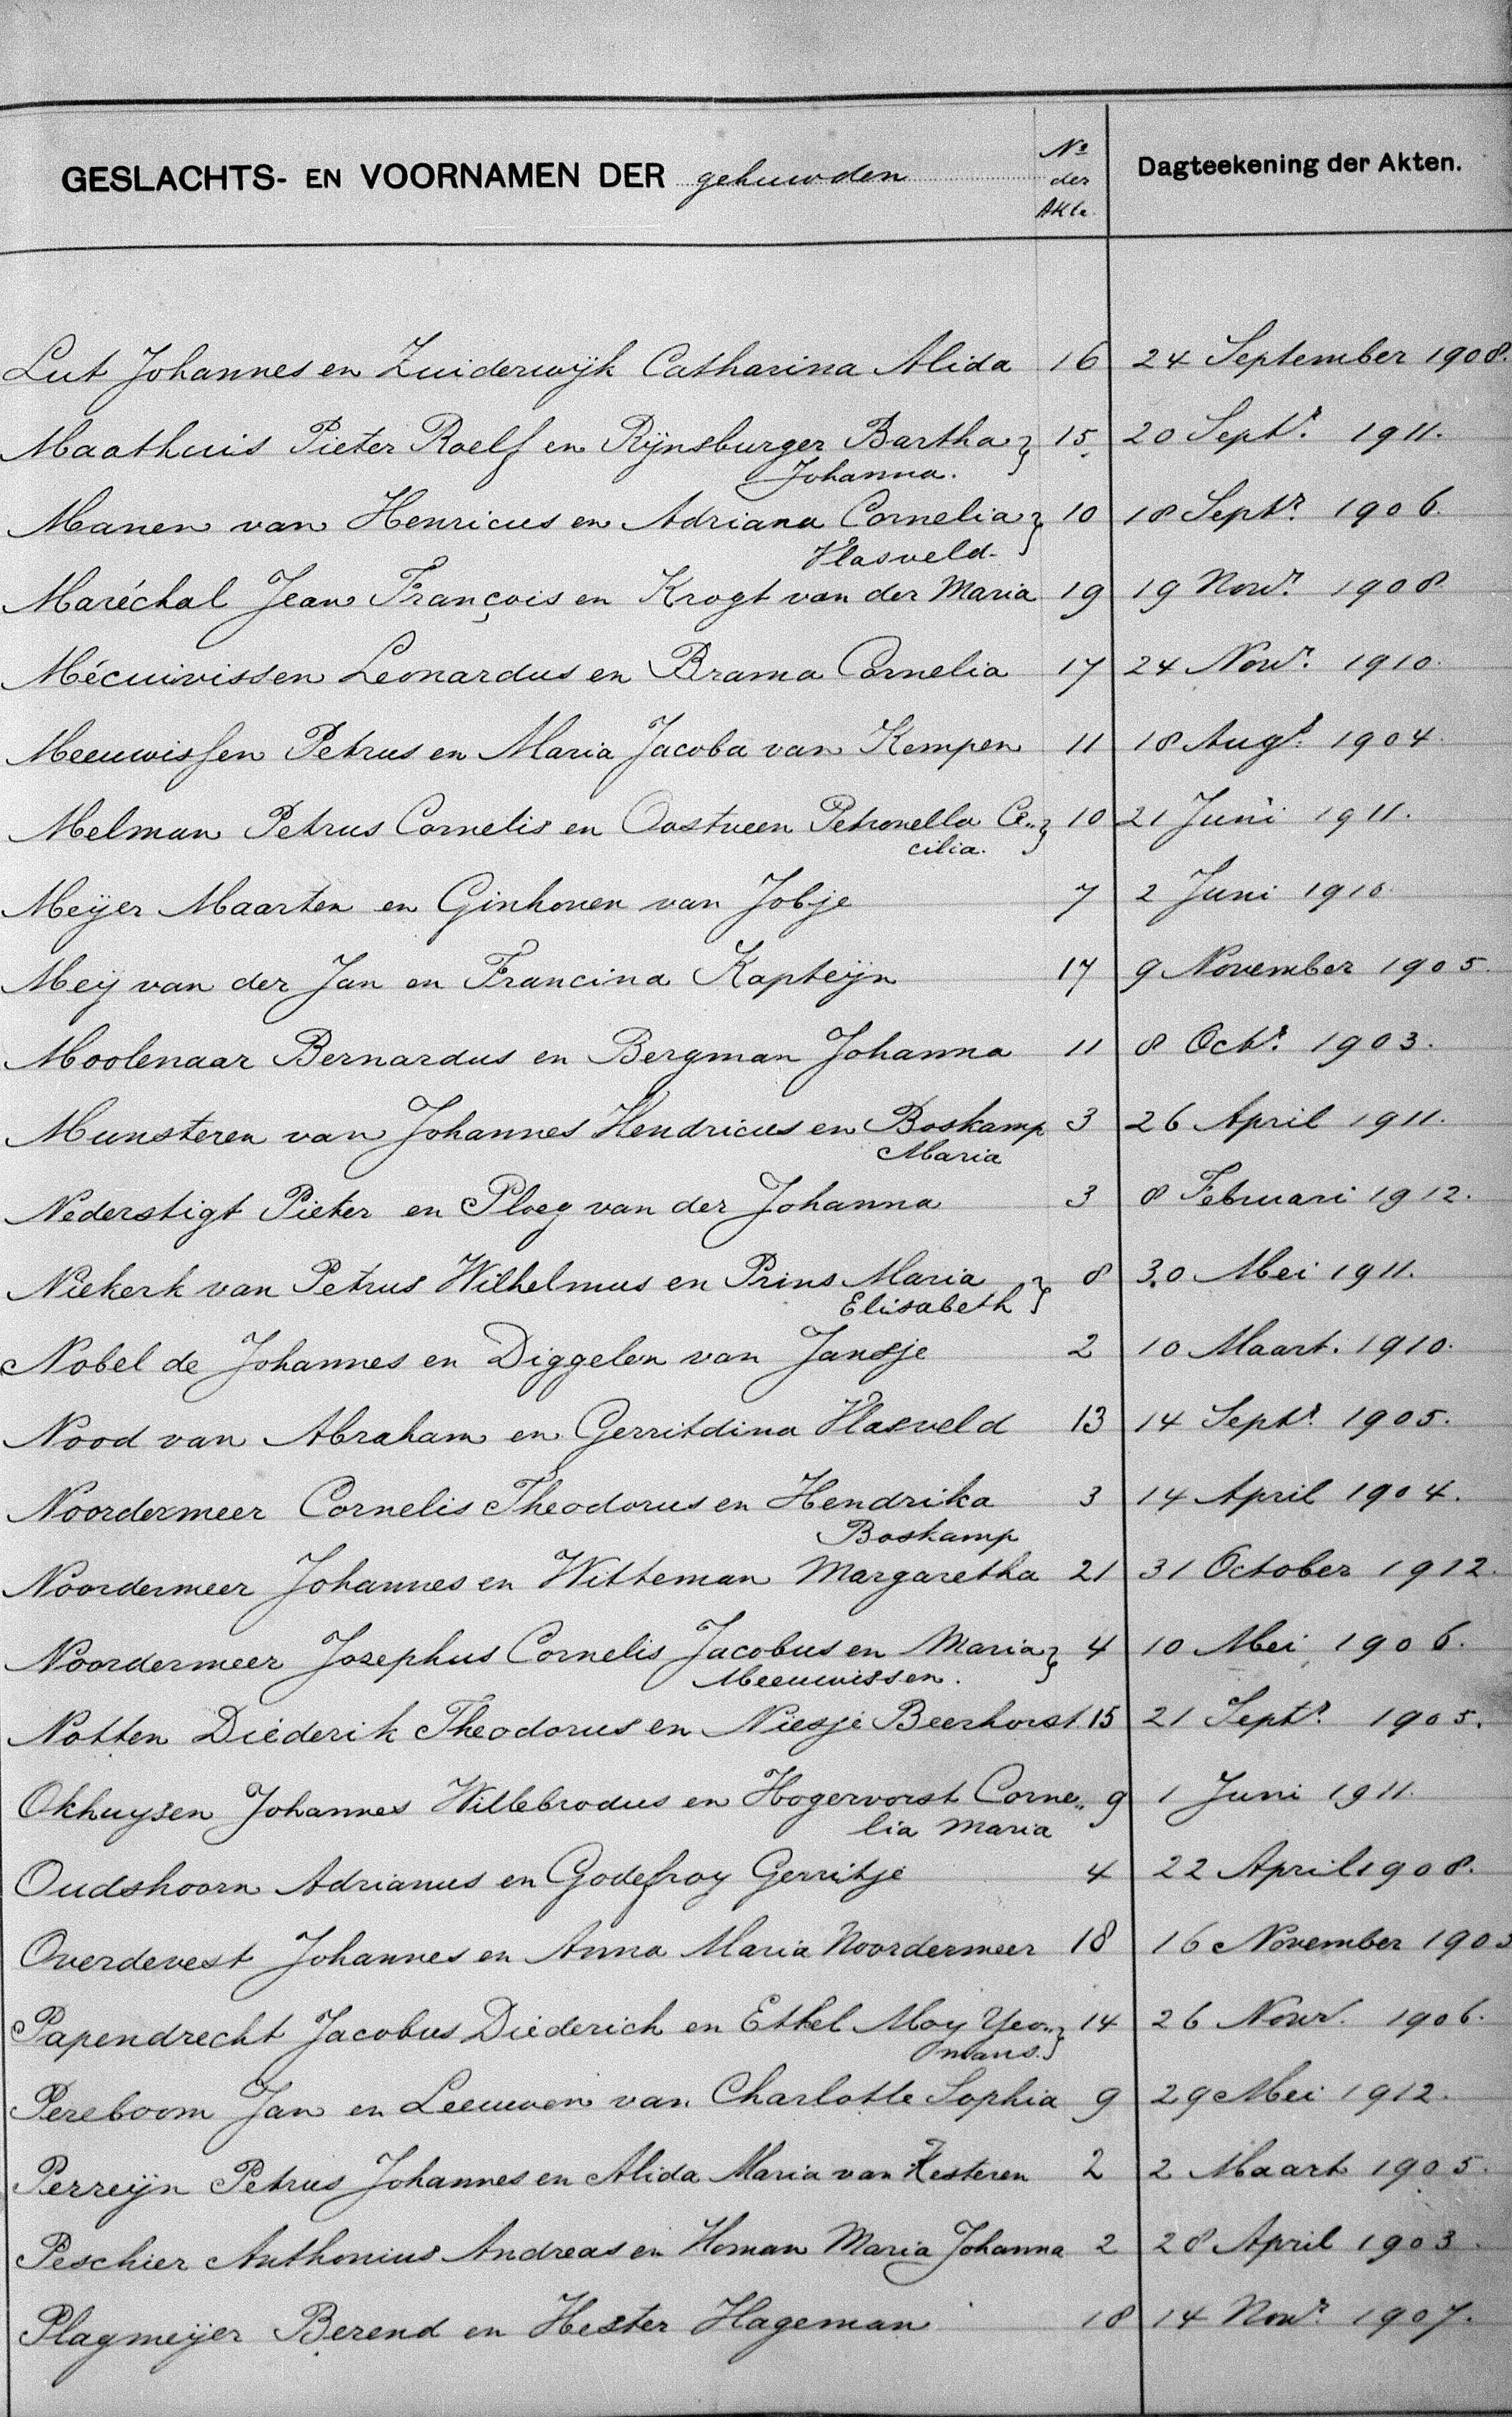 GESLACHTS- EN VOORNAMEN DER gehuwden No der Akte. Dagteekening der Akten.
Lut Johannes en Zuiderwijk Catharina Alida 16 24 September 1908.
Maathuis Pieter Roelf en Rijnsburger Bartha 15. 20 Septr. 1911.
Johanna.
Manen van Henricus en Adriana Cornelia 10 18 Septr. 1906.
Vlasveld.
Maréchal Jean François en Krogt van der Maria 19 19 Novr. 1908
Mécuivissen Leonardus en Brama Cornelia 17 24 Novr. 1910.
Meeuwissen Petrus en Maria Jacoba van Kempen 11 18 Augt. 1904.
Melman Petrus Cornelis en Oostveen Petronella Ce„ 10 21 Juni 1911.
cilia.
Meijer Maarten en Ginhoven van Jobje 7 2 Juni 1910.
Meij van der Jan en Francina Kapteijn 17 9 November 1905.
Moolenaar Bernardus en Bergman Johanna 11 8 Octr. 1903.
Munsteren van Johannes Hendricus en Boskamp 3 26 April 1911.
Maria
Nederstigt Pieter en Ploeg van der Johanna 3 8 Februari 1912.
Niekerk van Petrus Wilhelmus en Prins Maria 8 30 Mei 1911.
Elisabeth
Nobel de Johannes en Diggelen van Jansje 2 10 Maart. 1910.
Nood van Abraham en Gerritdina Vlasveld 13 14 Septr. 1905.
Noordermeer Cornelis Theodorus en Hendrika 3 14 April 1904.
Boskamp
Noordermeer Johannes en Witteman Margaretha 21 31 October 1912.
Noordermeer Josephus Cornelis Jacobus en Maria 4 10 Mei 1906.
Meeuwissen.
Notten Diederik Theodorus en Niesje Beerhorst 15 21 Septr. 1905.
Okhuysen Johannes Willebrodus en Hogervorst Corne„ 9 1 Juni 1911.
lia Maria
Oudshoorn Adrianus en Godefroy Gerritje 4 22 April 1908.
Overdevest Johannes en Anna Maria Noordermeer 18 16 November 1903
Papendrecht Jacobus Diederich en Ethel May Yeo„ 14 26 Novr. 1906.
mans.
Pereboom Jan en Leeuwen van Charlotte Sophia 9 29 Mei 1912.
Perreijn Petrus Johannes en Alida Maria van Kesteren 2 2 Maart 1905.
Peschier Anthonius Andreas en Homan Maria Johanna 2 28 April 1903.
Plagmeijer Berend en Hester Hageman 18 14 Novr. 1907.